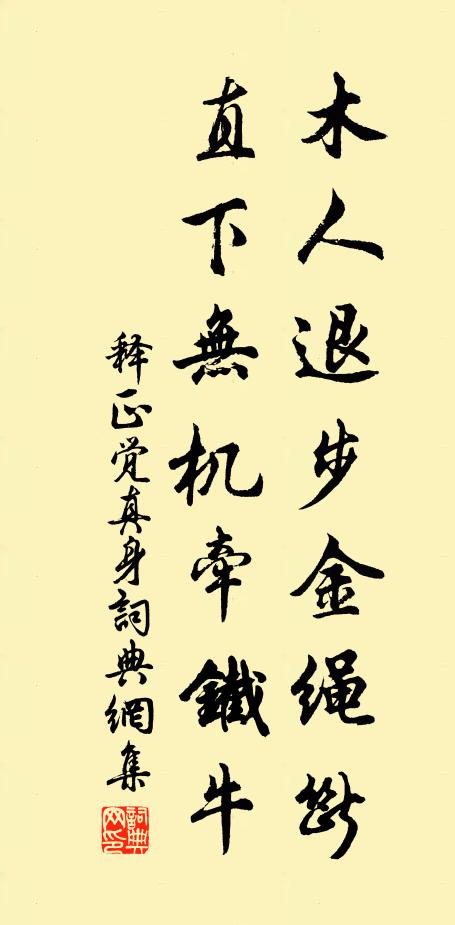 木人退步金绳断
直下無机牽鐵牛
释正觉真身詞典網集
詞典网印